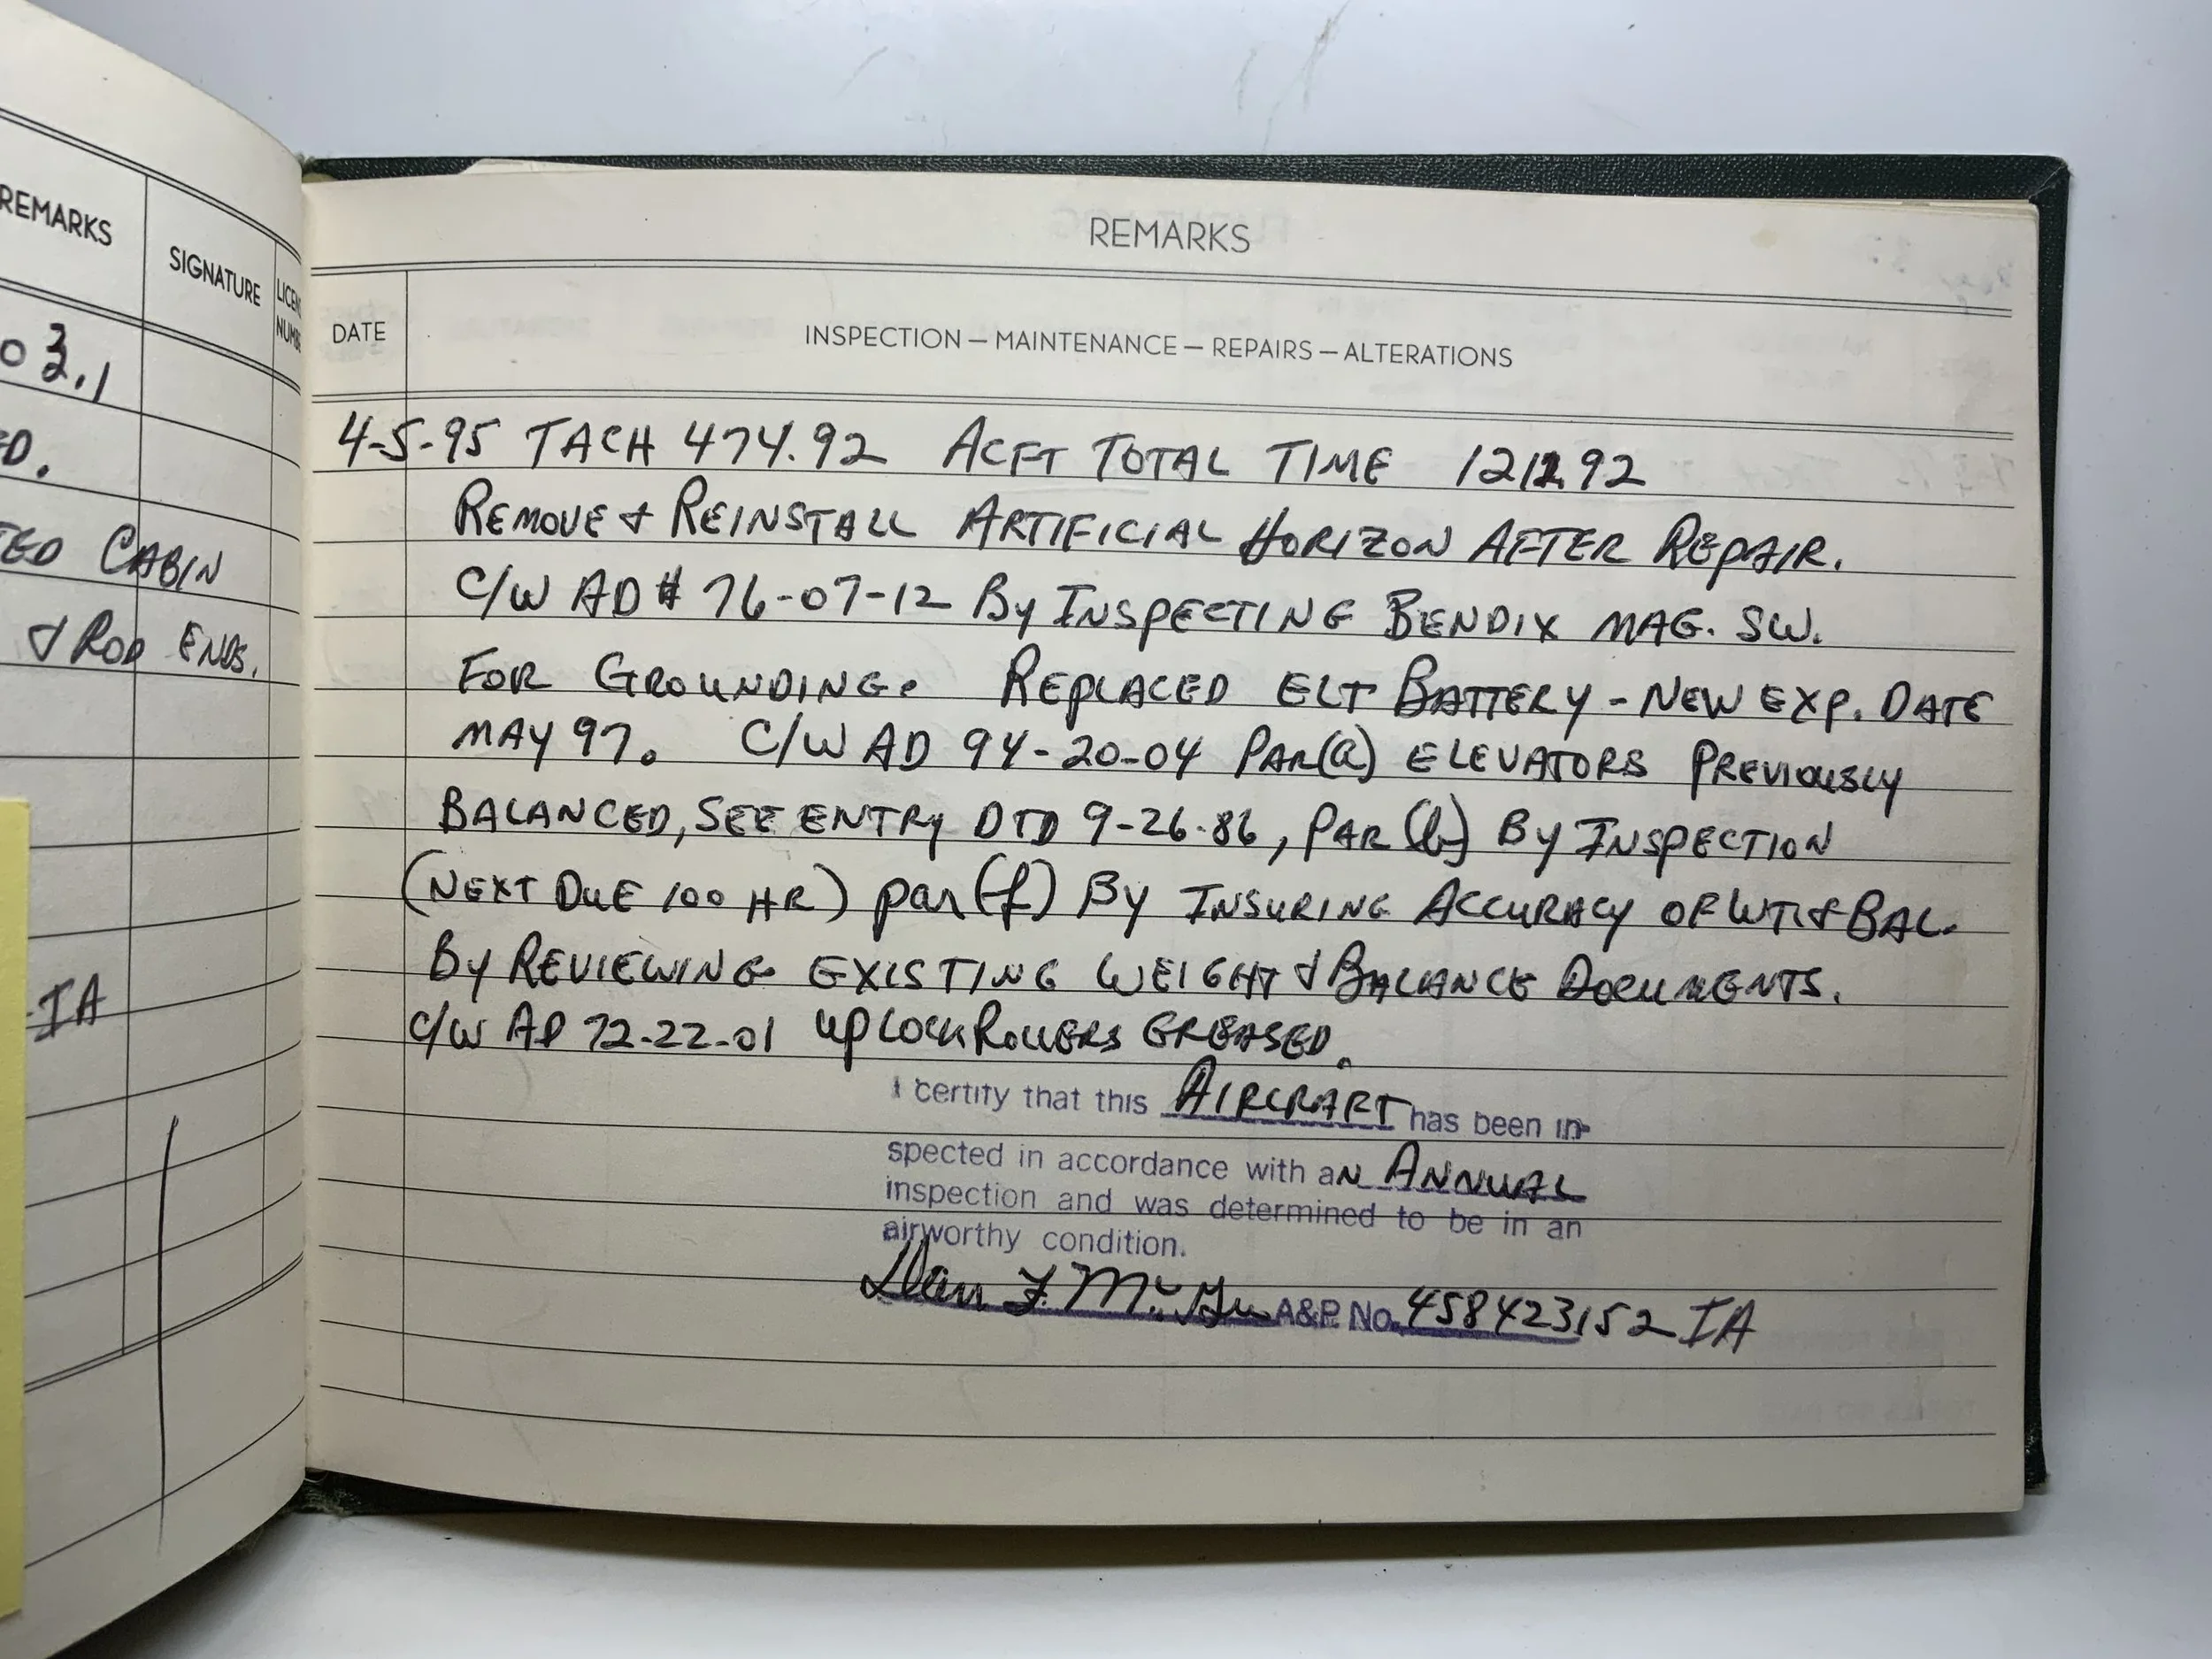 REMARKS
SIGNATURE
03.1
ED.
TED CABIN
& ROD ENDS.
IA
REMARKS
DATE
INSPECTION — MAINTENANCE — REPAIRS — ALTERATIONS
4-5-95 TACH 474.92 ACFT TOTAL TIME 1212.92
REMOVE & REINSTALL ARTIFICIAL HORIZON AFTER REPAIR.
C/W AD # 76-07-12 By INSPECTING BENDIX MAG. SW.
FOR GROUNDING. REPLACED ELT BATTERY - NEW EXP. DATE
MAY 97. C/W AD 94-20-04 PAR(a) ELEVATORS PREVIOUSLY
BALANCED, SEE ENTRY DTD 9-26-86, PAR (b) By INSPECTION
(NEXT DUE 100 HR) par (f) By INSURING ACCURACY OF WT. & BAL.
By REVIEWING EXISTING WEIGHT & BALANCE DOCUMENTS.
C/W AD 72-22-01 UPLOCK ROLLERS GREASED.
I certify that this AIRCRAFT has been in-
spected in accordance with aN ANNUAL
inspection and was determined to be in an
airworthy condition.
A&P No. 458423152 IA